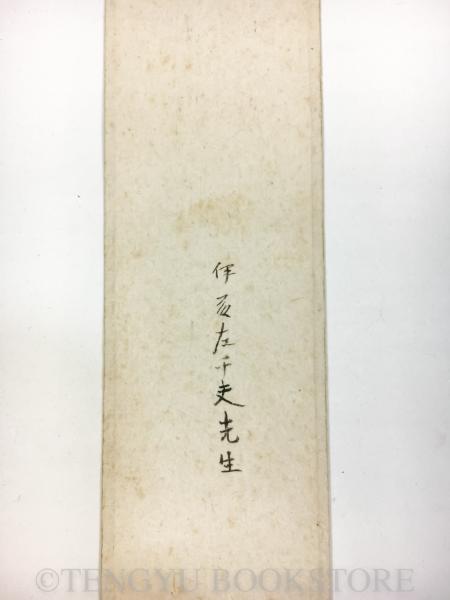 伊藤左千夫先生
©TENGYU BOOKSTORE